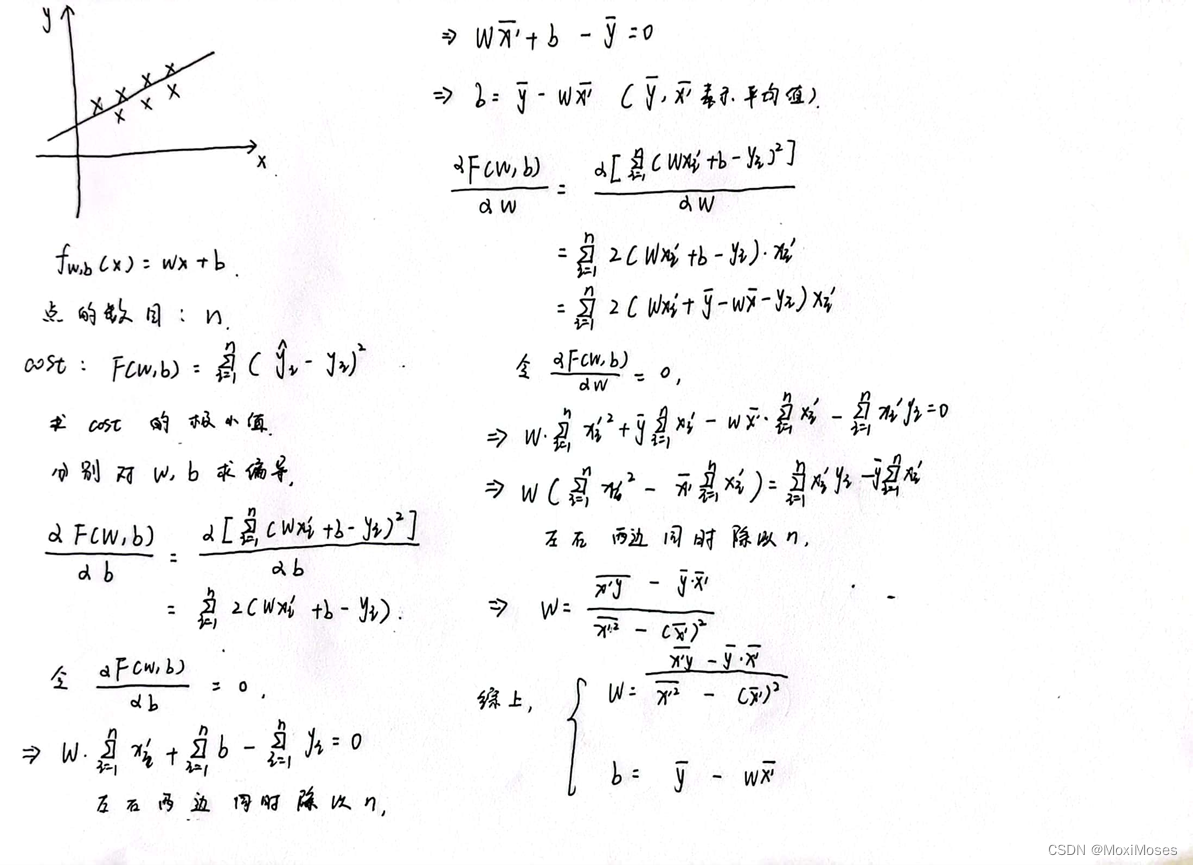 y
x
f_{w,b}(x) = wx + b.
点的数目: n.
cost: F(w,b) = \sum_{i=1}^{n} (\hat{y}_i - y_i)^2.
求 cost 的极小值.
分别对 w, b 求偏导,
\frac{∂F(w,b)}{∂b} = \frac{∂[\sum_{i=1}^{n} (wx_i' + b - y_i)^2]}{∂b}
= \sum_{i=1}^{n} 2(wx_i' + b - y_i).
令 \frac{∂F(w,b)}{∂b} = 0,
⇒ w·\sum_{i=1}^{n} x_i' + \sum_{i=1}^{n} b - \sum_{i=1}^{n} y_i = 0
左右两边同时除以 n,
⇒ w\bar{x'} + b - \bar{y} = 0
⇒ b = \bar{y} - w\bar{x'} (\bar{y}, \bar{x'} 表示平均值).
\frac{∂F(w,b)}{∂w} = \frac{∂[\sum_{i=1}^{n} (wx_i' + b - y_i)^2]}{∂w}
= \sum_{i=1}^{n} 2(wx_i' + b - y_i)·x_i'
= \sum_{i=1}^{n} 2(wx_i' + \bar{y} - w\bar{x} - y_i)x_i'
令 \frac{∂F(w,b)}{∂w} = 0,
⇒ w·\sum_{i=1}^{n} x_i'^2 + \bar{y}\sum_{i=1}^{n} x_i' - w\bar{x}·\sum_{i=1}^{n} x_i' - \sum_{i=1}^{n} x_i'y_i = 0
⇒ w(\sum_{i=1}^{n} x_i'^2 - \bar{x'}\sum_{i=1}^{n} x_i') = \sum_{i=1}^{n} x_i'y_i - \bar{y}\sum_{i=1}^{n} x_i'
左右两边同时除以 n,
⇒ w = \frac{\overline{x'y} - \bar{y}·\bar{x'}}{\overline{x'^2} - (\bar{x'})^2}
综上, { w = \frac{\overline{x'y} - \bar{y}·\bar{x'}}{\overline{x'^2} - (\bar{x'})^2}
b = \bar{y} - w\bar{x'}
CSDN @MoxiMoses